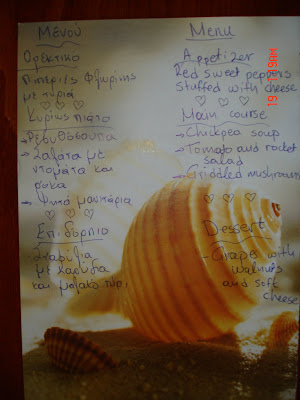 Μενού
Ορεκτικό
Πιπεριές Φλωρίνης
με τυριά
Κυρίως πιάτο
→ Ρεβυθόσουπα
→ Σαλάτα με
ντομάτα και
ρόκα
→ Ψητά μανιτάρια
Επιδόρπιο
Σταφύλια
με καρύδια
και μαλακό τυρί
Menu
Appetizer
Red sweet peppers
stuffed with cheese
Main course
→ Chickpea soup
→ Tomato and rocket
salad
→ Griddled mushrooms
Dessert
Grapes with
walnuts
and soft
cheese